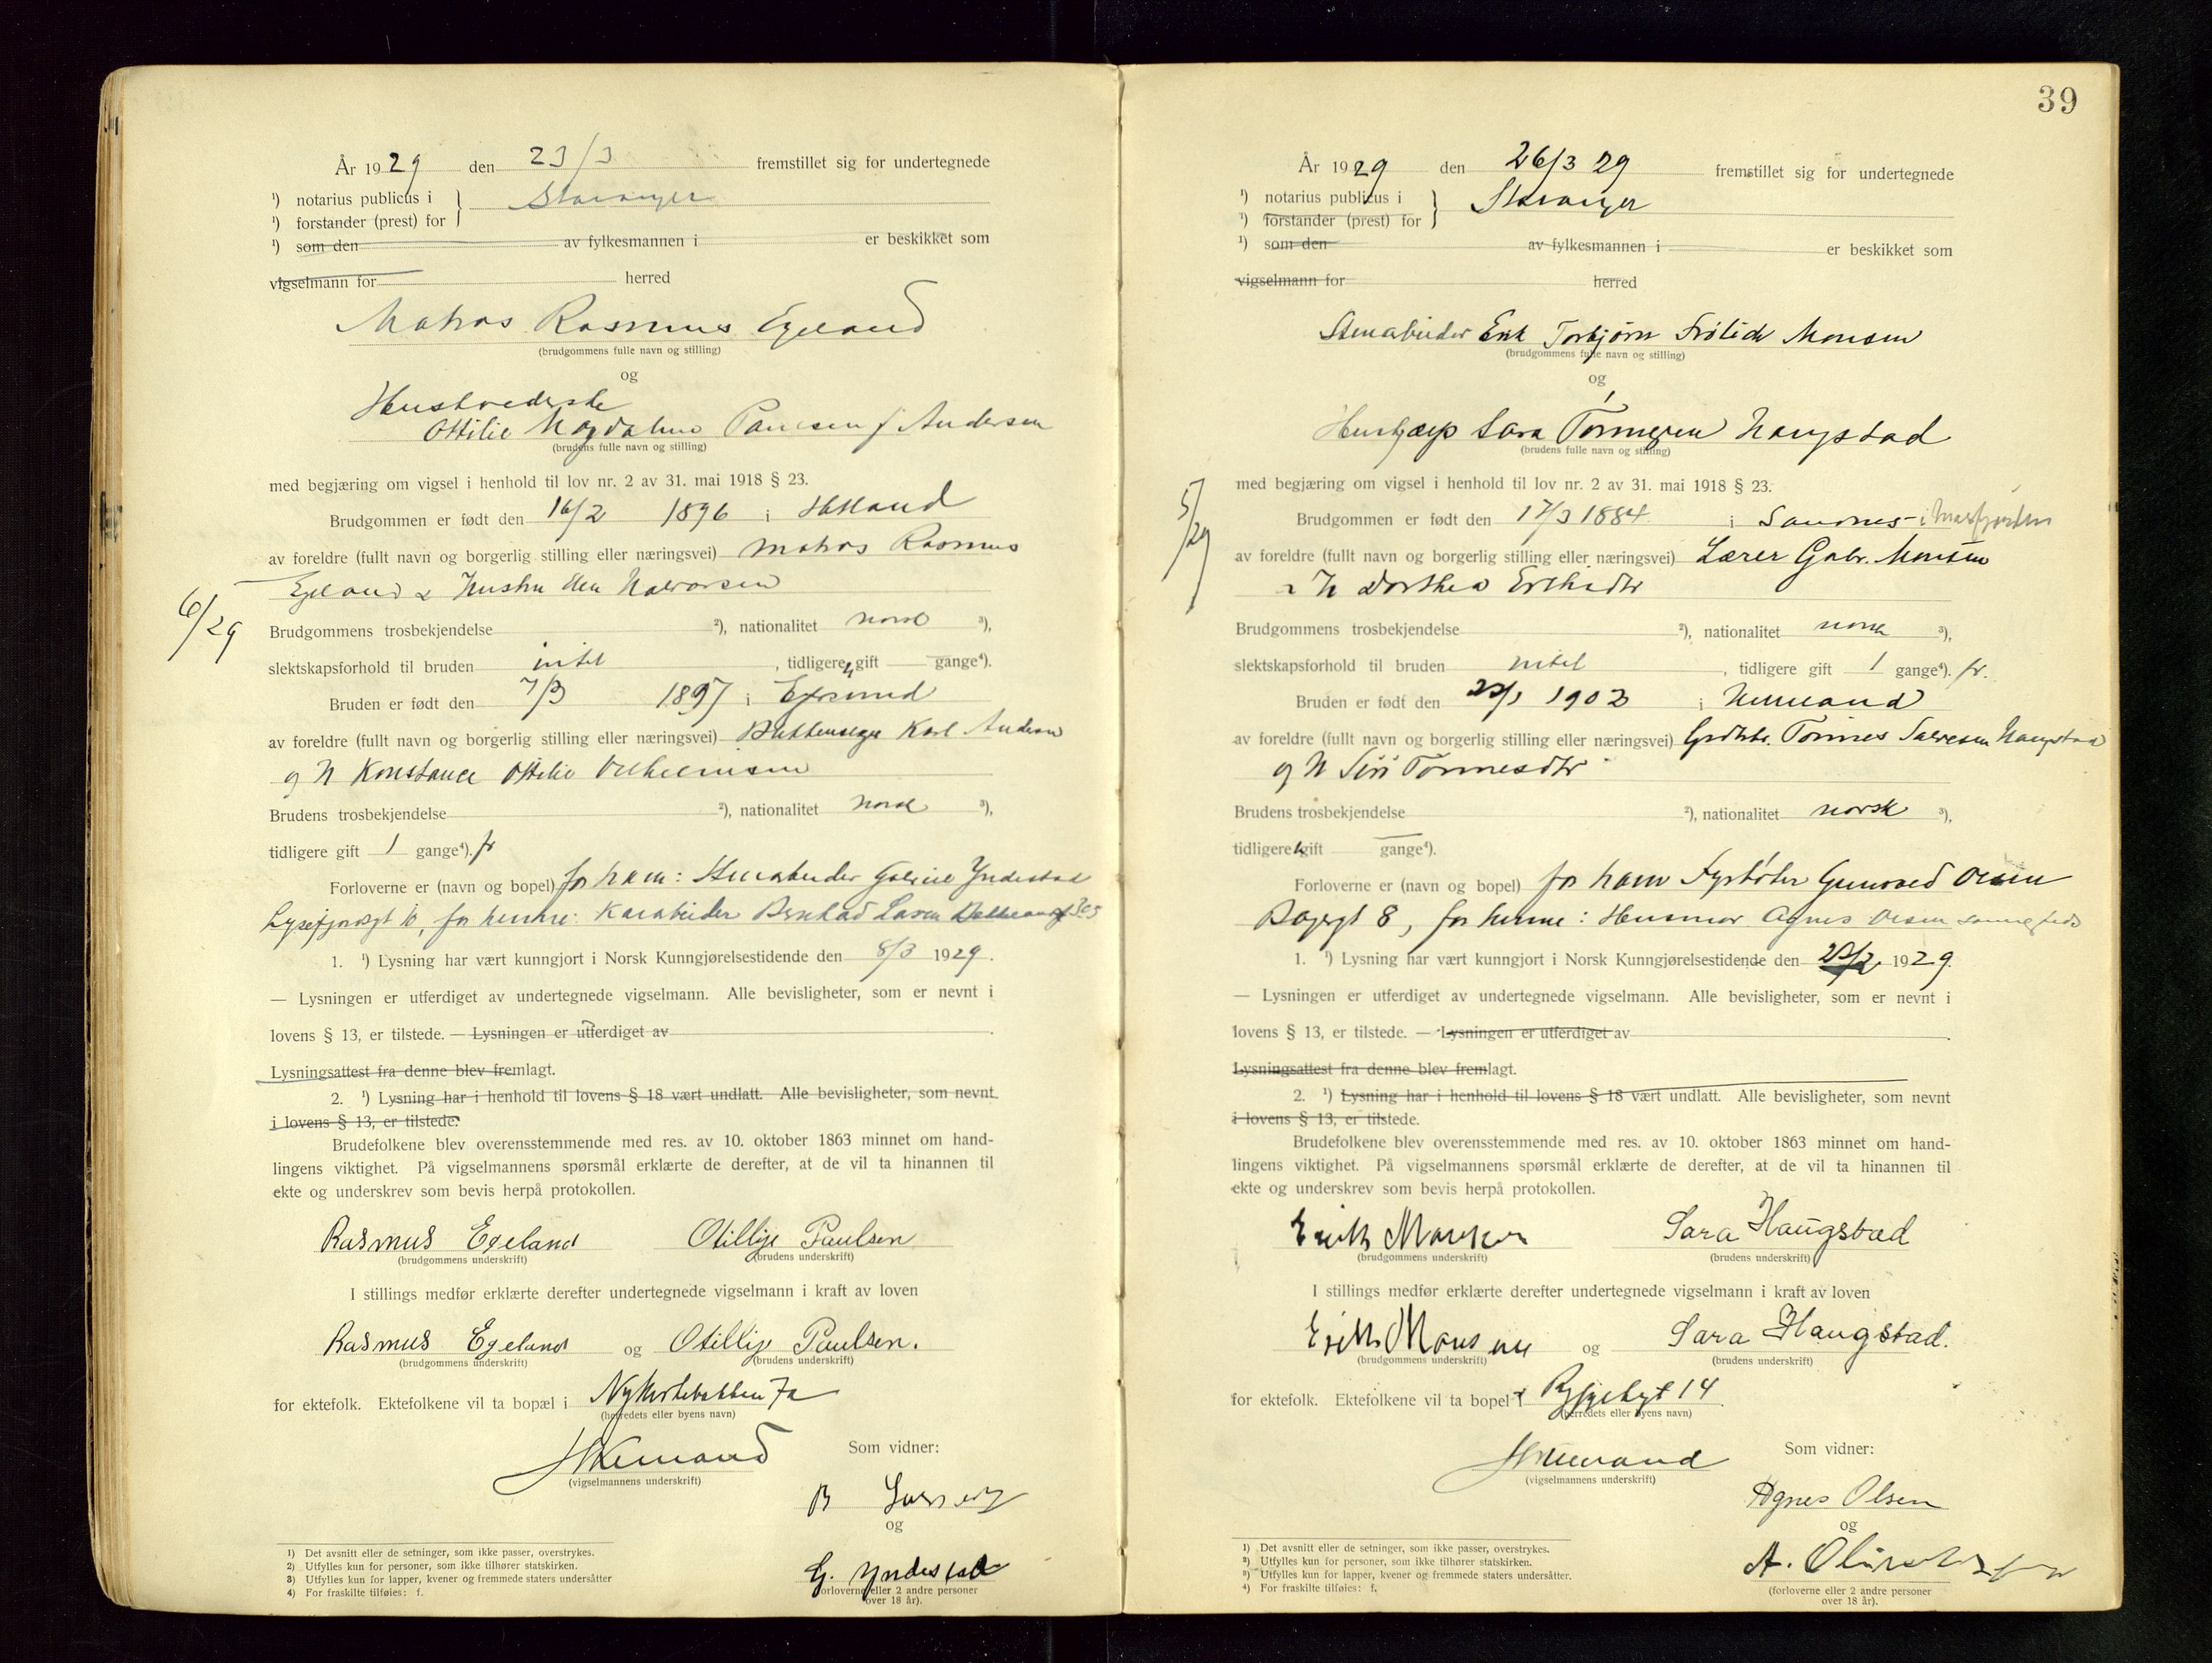 År 1929 den 23/3 fremstillet sig for undertegnede
¹) notarius publicus i
Stavanger
¹) forstander (prest) for
¹) som den av fylkesmannen i er beskikket som
vigselmann for herred
Matros Rasmus Egeland
(brudgommens fulle navn og stilling)
og
Husbrederske
Ottilie Magdalene Paulsen f Andersen
(brudens fulle navn og stilling)
med begjæring om vigsel i henhold til lov nr. 2 av 31. mai 1918 § 23.
Brudgommen er født den 16/2 1896 i Hetland
av foreldre (fullt navn og borgerlig stilling eller næringsvei) Matros Rasmus
Egeland & Hustru Halvorsen
6/29
Brudgommens trosbekjendelse ²), nationalitet norsk ³),
slektskapsforhold til bruden intet, tidligere gift gange⁴).
Bruden er født den 7/3 1897 i Egersund
av foreldre (fullt navn og borgerlig stilling eller næringsvei) Karl Andersen
og H Konstance Ottilie Vilhelmsen
Brudens trosbekjendelse ²), nationalitet norsk ³),
tidligere gift 1 gange⁴). fr
Forloverne er (navn og bopel) for ham: Stuearbeider Gabriel Yndestad
Lysefjordgt 10, for henne: Larsen
1. ¹) Lysning har vært kunngjort i Norsk Kunngjørelsestidende den 8/3 1929.
— Lysningen er utferdiget av undertegnede vigselmann. Alle bevisligheter, som er nevnt i
lovens § 13, er tilstede. — Lysningen er utferdiget av
Lysningsattest fra denne blev fremlagt.
2. ¹) Lysning har i henhold til lovens § 18 vært undlatt. Alle bevisligheter, som nevnt
i lovens § 13, er tilstede.
Brudefolkene blev overensstemmende med res. av 10. oktober 1863 minnet om hand-
lingens viktighet. På vigselmannens spørsmål erklærte de derefter, at de vil ta hinannen til
ekte og underskrev som bevis herpå protokollen.
Rasmus Egeland Otillije Paulsen
(brudgommens underskrift) (brudens underskrift)
I stillings medfør erklærte derefter undertegnede vigselmann i kraft av loven
Rasmus Egeland og Otillije Paulsen.
(brudgommens underskrift) (brudens underskrift)
for ektefolk. Ektefolkene vil ta bopæl i Nykirkebakken 7a
(herredets eller byens navn)
Som vidner:
(vigselmannens underskrift)
B Larsen
og
G. Yndestad
(forloverne eller 2 andre personer
over 18 år).
¹) Det avsnitt eller de setninger, som ikke passer, overstrykes.
2) Utfylles kun for personer, som ikke tilhører statskirken.
3) Utfylles kun for lapper, kvener og fremmede staters undersåtter
4) For fraskilte tilføies: f.
39
År 1929 den 26/3 29 fremstillet sig for undertegnede
¹) notarius publicus i
Stavanger
¹) forstander (prest) for
¹) som den av fylkesmannen i er beskikket som
vigselmann for herred
Erik Torbjørn Frølich Monsen
(brudgommens fulle navn og stilling)
og
Hushjælp Sara Haugstad
(brudens fulle navn og stilling)
med begjæring om vigsel i henhold til lov nr. 2 av 31. mai 1918 § 23.
5/29
Brudgommen er født den 17/3 1884 i Sandnes i Masfjorden
av foreldre (fullt navn og borgerlig stilling eller næringsvei) Lærer Gabr. Monsen
& H Dorthea
Brudgommens trosbekjendelse ²), nationalitet norsk ³),
slektskapsforhold til bruden intet, tidligere gift 1 gange⁴). fr.
Bruden er født den 1903 i
av foreldre (fullt navn og borgerlig stilling eller næringsvei) Grdbr. Tønnes Salvesen Haugstad
og H Siri Tønnesdtr
Brudens trosbekjendelse ²), nationalitet norsk ³),
tidligere gift gange⁴).
Forloverne er (navn og bopel) for ham Fyrbøter Gunvald Olsen
8, for henne: Husmor Agnes Olsen sammesteds
1. ¹) Lysning har vært kunngjort i Norsk Kunngjørelsestidende den 1929.
— Lysningen er utferdiget av undertegnede vigselmann. Alle bevisligheter, som er nevnt i
lovens § 13, er tilstede. — Lysningen er utferdiget av
Lysningsattest fra denne blev fremlagt.
2. ¹) Lysning har i henhold til lovens § 18 vært undlatt. Alle bevisligheter, som nevnt
i lovens § 13, er tilstede.
Brudefolkene blev overensstemmende med res. av 10. oktober 1863 minnet om hand-
lingens viktighet. På vigselmannens spørsmål erklærte de derefter, at de vil ta hinannen til
ekte og underskrev som bevis herpå protokollen.
Erik Monsen Sara Haugstad
(brudgommens underskrift) (brudens underskrift)
I stillings medfør erklærte derefter undertegnede vigselmann i kraft av loven
Erik Monsen og Sara Haugstad.
(brudgommens underskrift) (brudens underskrift)
for ektefolk. Ektefolkene vil ta bopel i 14
(herredets eller byens navn)
Som vidner:
(vigselmannens underskrift)
Agnes Olsen
og
A.
(forloverne eller 2 andre personer
over 18 år).
¹) Det avsnitt eller de setninger, som ikke passer, overstrykes.
²) Utfylles kun for personer, som ikke tilhører statskirken.
³) Utfylles kun for lapper, kvener og fremmede staters undersåtter.
⁴) For fraskilte tilføies: f.